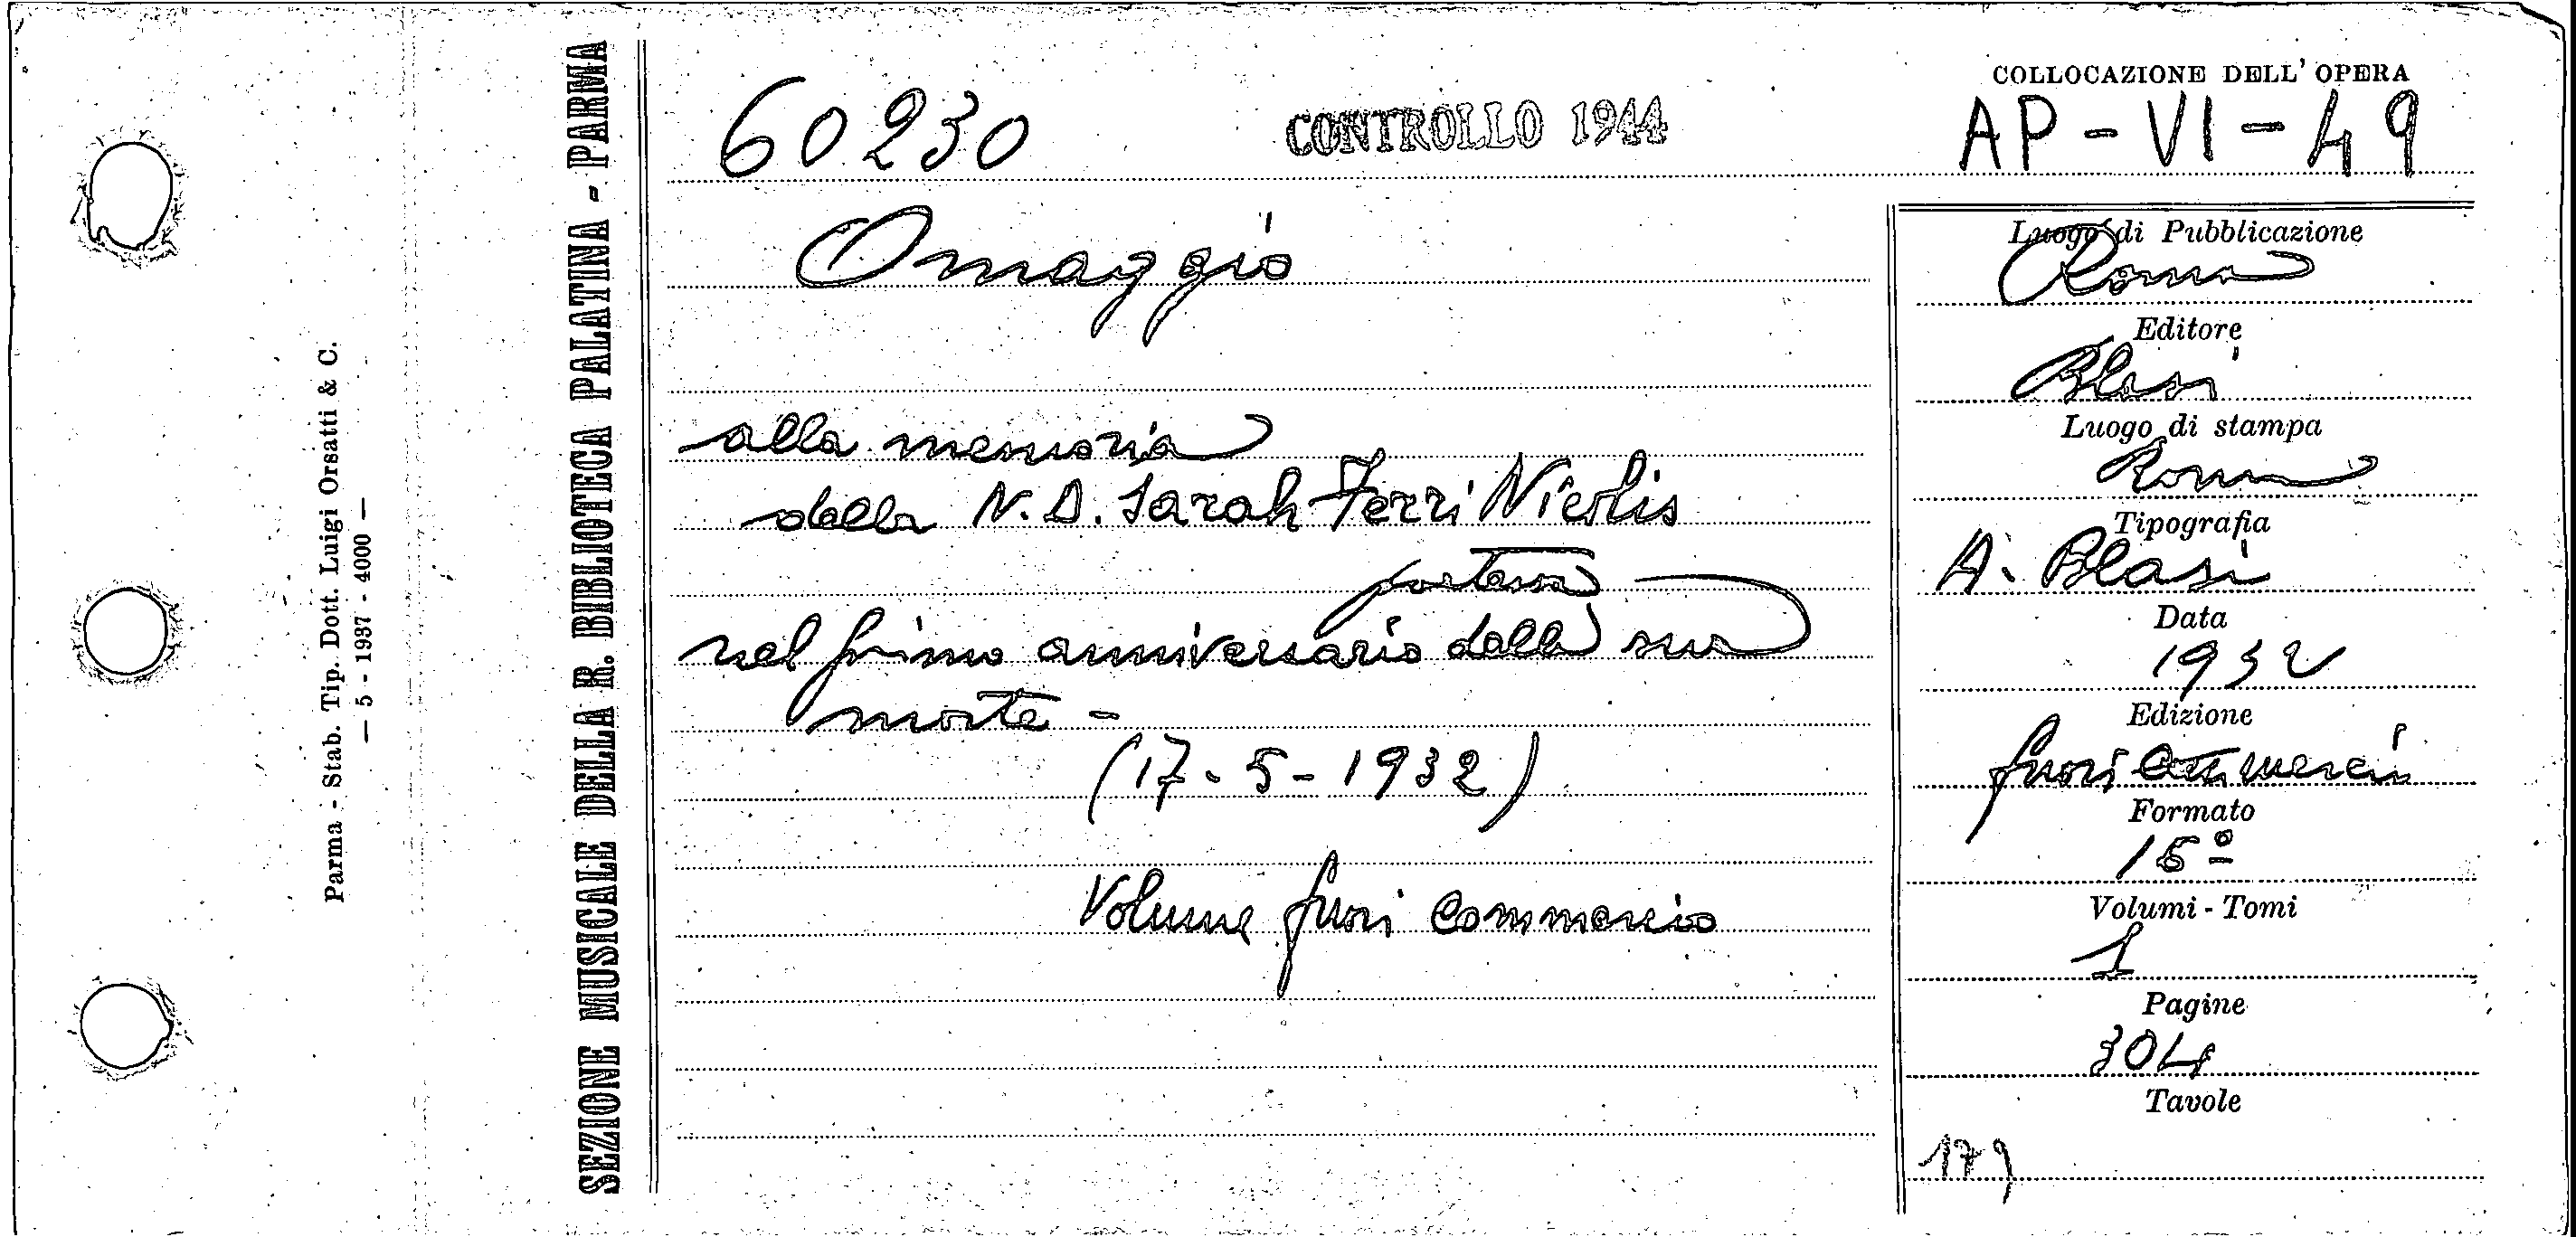 Parma - Stab. Tip. Dott. Luigi Orsatti & C.
— 5 - 1937 - 4000 —
SEZIONE MUSICALE DELLA R. BIBLIOTECA PALATINA - PARMA
60230
CONTROLLO 1944
COLLOCAZIONE DELL' OPERA
AP - VI - 49
Omaggio
alla memoria
della N. D. Sarah Ferri Nicolis
poetessa
nel primo anniversario della sua
morte -
(17 - 5 - 1932)
Volume fuori commercio
Luogo di Pubblicazione
Roma
Editore
Blasi
Luogo di stampa
Roma
Tipografia
A. Blasi
Data
1932
Edizione
fuori commercio
Formato
Volumi - Tomi
1
Pagine
304
Tavole